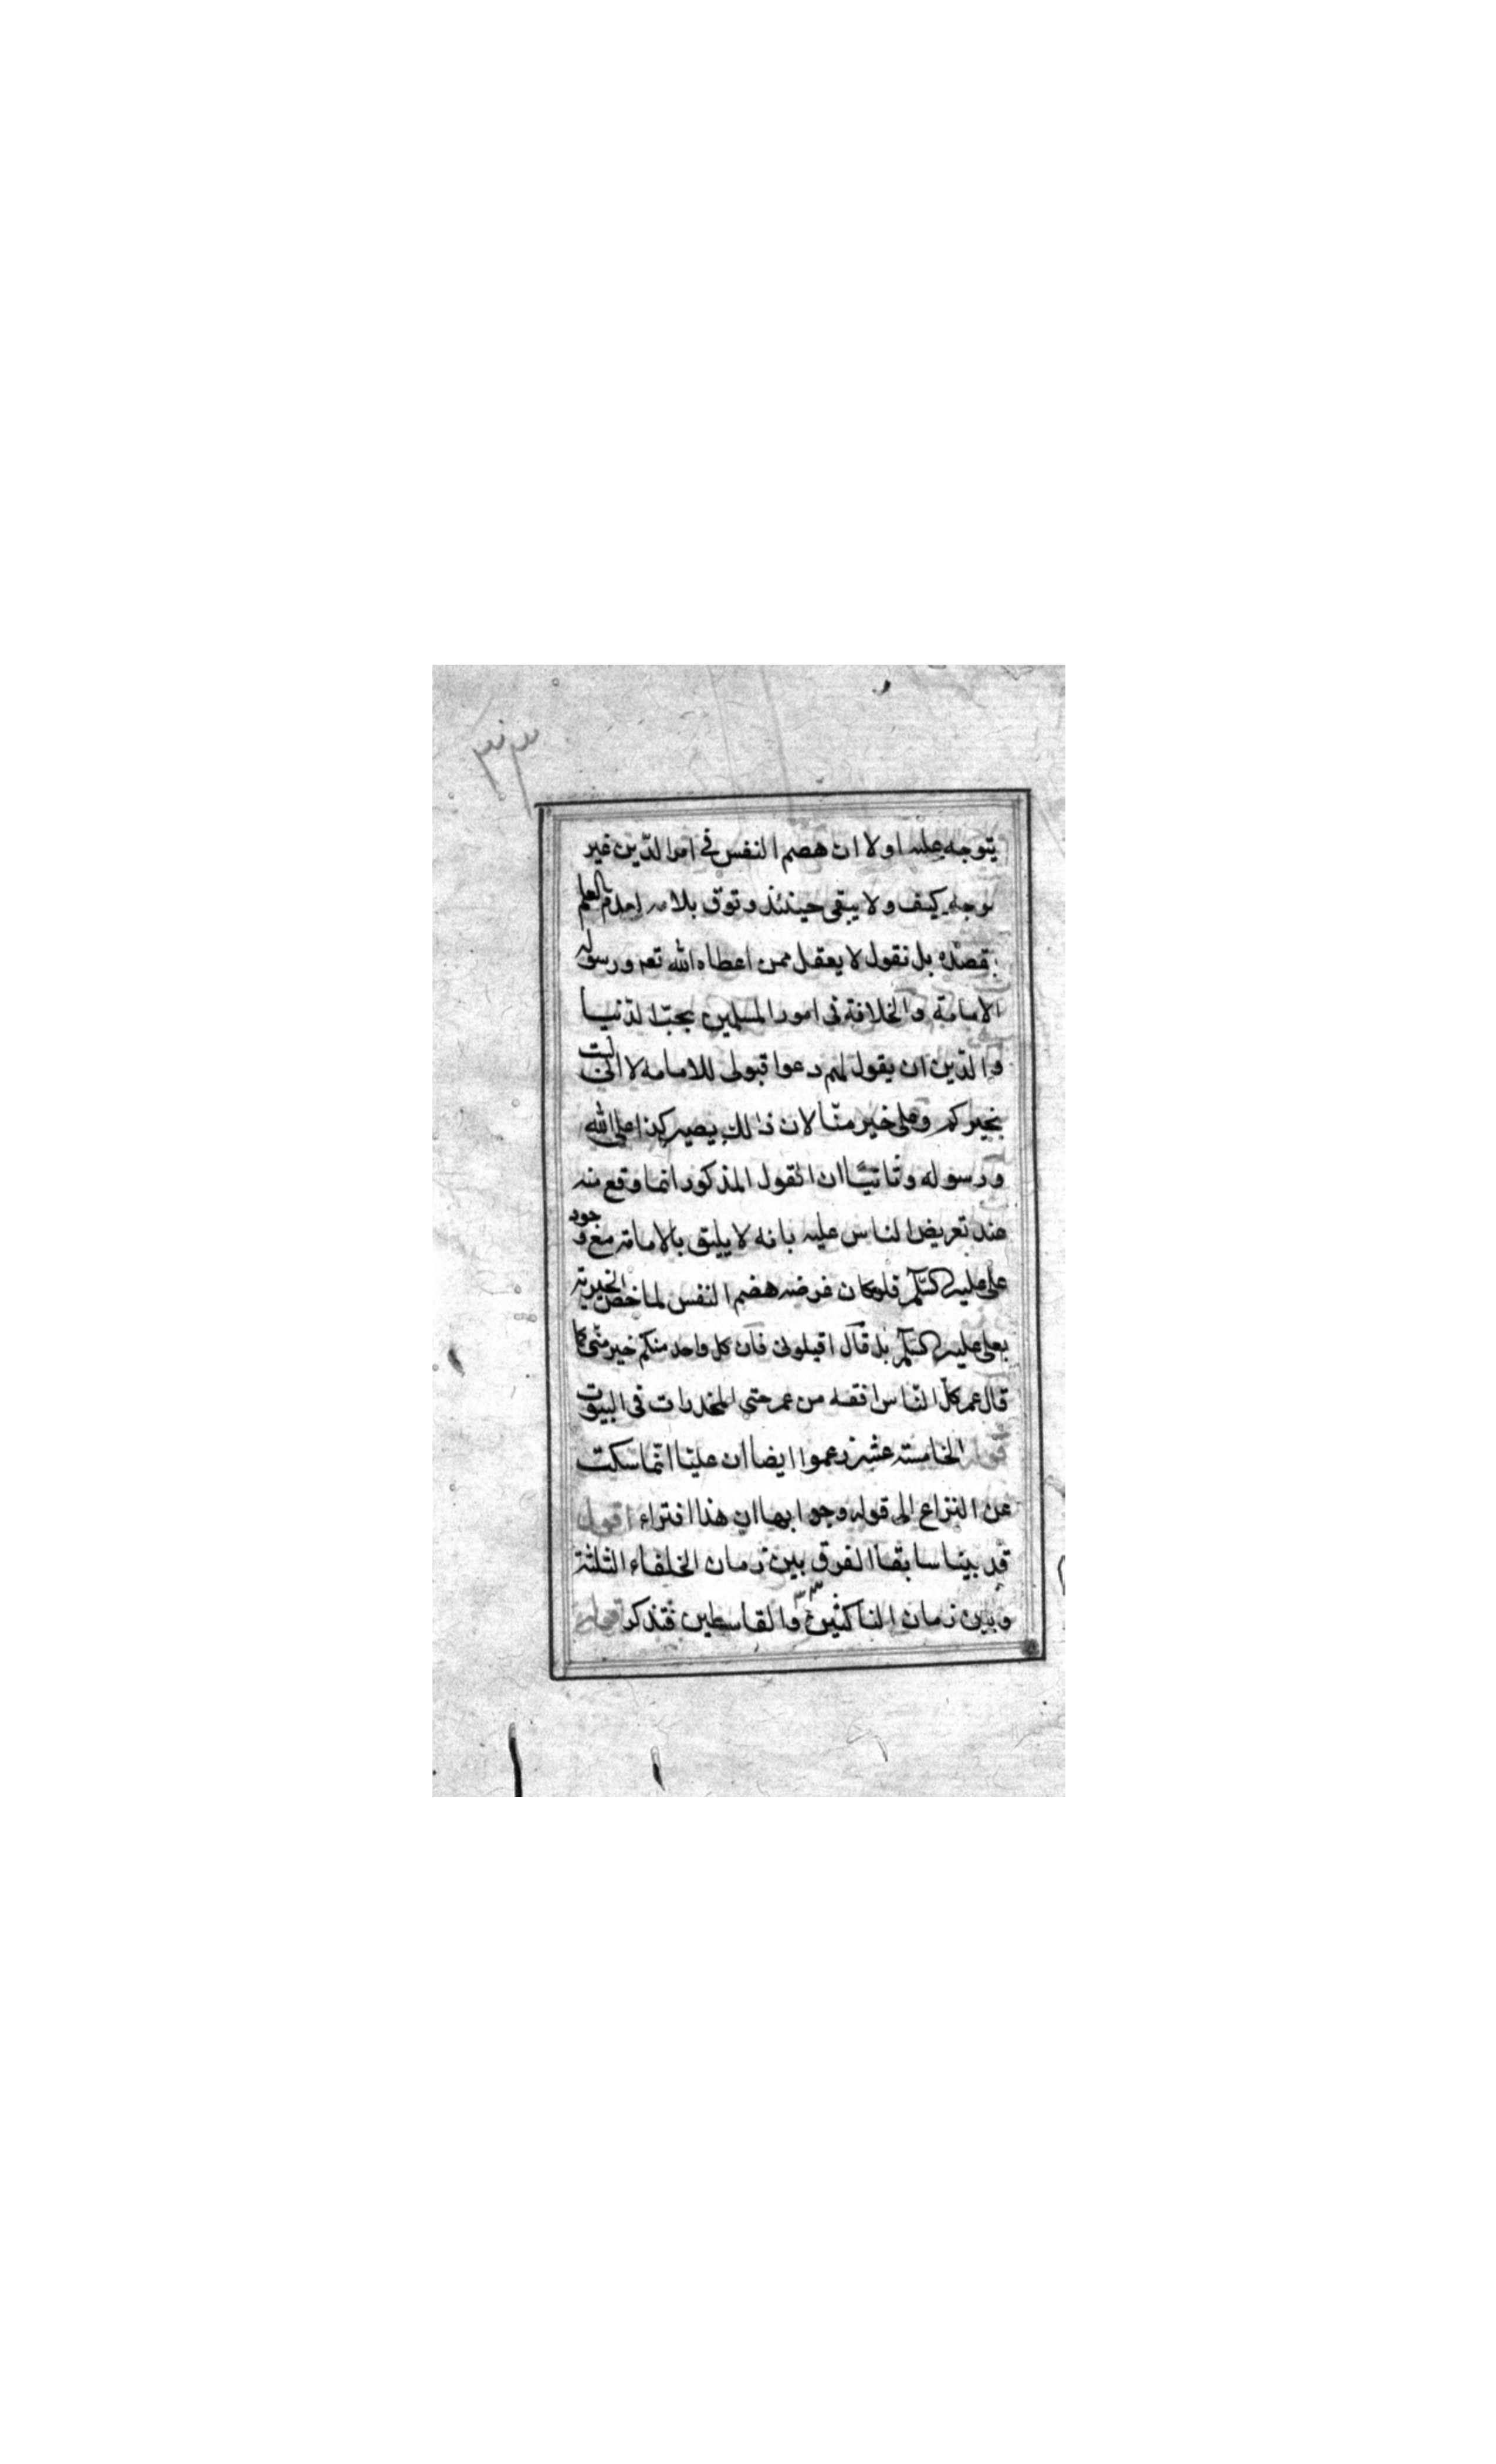 ٣٣
يتوجه عليه اولا ان هضم النفس في امر الدّين غير
موجه كيف ولا يبقى حينئذ وثوق بلامه لعدم العلم
بقصده بل نقول لا يعقل ممن اعطاه الله تعر ورسوله
الامامة والخلافة في امور المسلمين بحب الدنيا
والدّين ان يقول لهم دعوا قبولى للامامه لانى لست
بخيركم وعلى خير منّا لان ذلك يصير كذا على الله
ورسوله وثانيًا ان القول المذكور انما وقع منه
عند تعريض الناس عليه بانه لا يليق بالامامة مع وجود
على عليه فلو كان غرضه هضم النفس لما خصّ الخيرية
بعلى عليه بل قال اقيلونى فان كل واحد منكم خير منّى كما
قال عمر كلّ النّاس افقه من عمر حتى المخدرات فى البيوت
قوله الخامسة عشر زعموا ايضا ان عليّا انّما سكت
عن النزاع الى قوله وجوابها ان هذا افتراء اقول
قد بينا سابقا الفرق بين زمان الخلفاء الثلثة
وبين زمان الناكثين والقاسطين فتذكر قوله